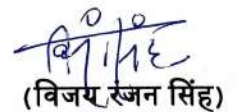 (विजय रंजन सिंह)